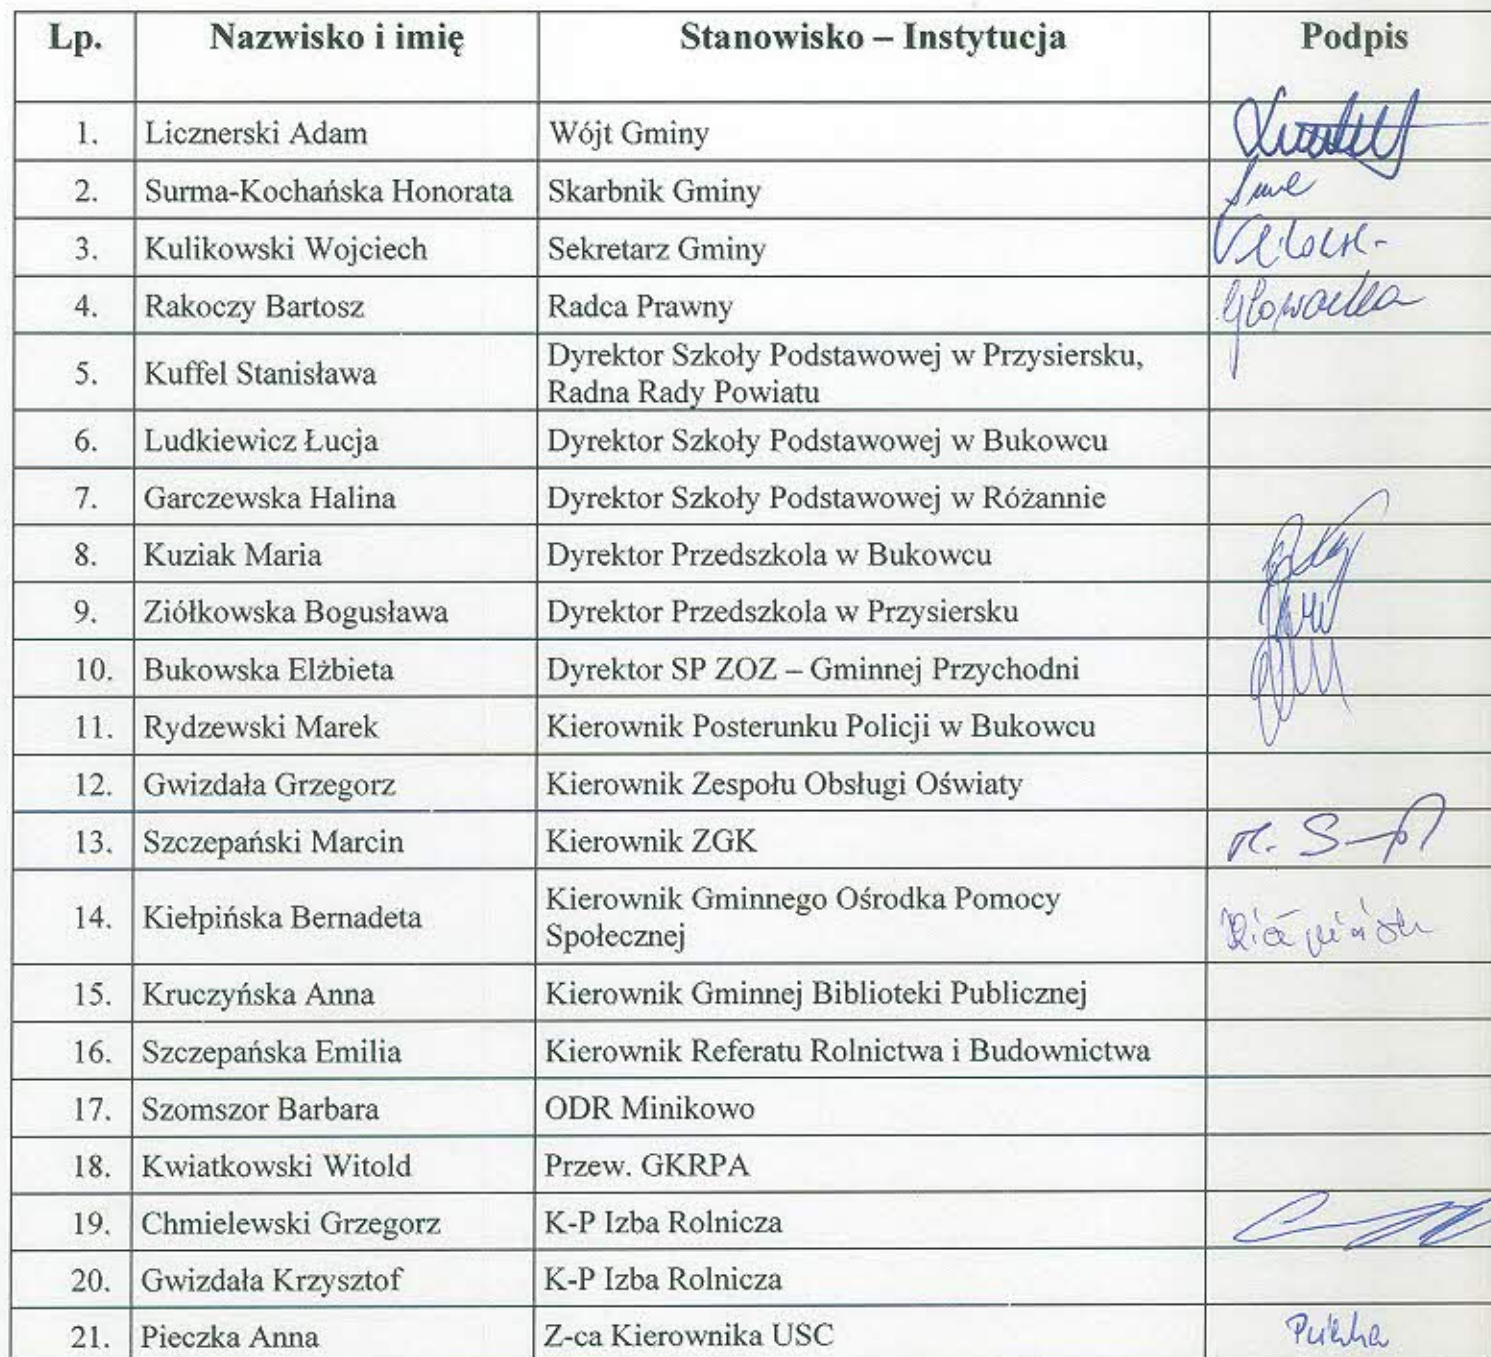 Lp. Nazwisko i imię Stanowisko – Instytucja Podpis
1. Licznerski Adam Wójt Gminy
2. Surma-Kochańska Honorata Skarbnik Gminy
3. Kulikowski Wojciech Sekretarz Gminy
4. Rakoczy Bartosz Radca Prawny
5. Kuffel Stanisława Dyrektor Szkoły Podstawowej w Przysiersku,
Radna Rady Powiatu
6. Ludkiewicz Łucja Dyrektor Szkoły Podstawowej w Bukowcu
7. Garczewska Halina Dyrektor Szkoły Podstawowej w Różannie
8. Kuziak Maria Dyrektor Przedszkola w Bukowcu
9. Ziółkowska Bogusława Dyrektor Przedszkola w Przysiersku
10. Bukowska Elżbieta Dyrektor SP ZOZ – Gminnej Przychodni
11. Rydzewski Marek Kierownik Posterunku Policji w Bukowcu
12. Gwizdała Grzegorz Kierownik Zespołu Obsługi Oświaty
13. Szczepański Marcin Kierownik ZGK
14. Kiełpińska Bernadeta Kierownik Gminnego Ośrodka Pomocy
Społecznej
15. Kruczyńska Anna Kierownik Gminnej Biblioteki Publicznej
16. Szczepańska Emilia Kierownik Referatu Rolnictwa i Budownictwa
17. Szomszor Barbara ODR Minikowo
18. Kwiatkowski Witold Przew. GKRPA
19. Chmielewski Grzegorz K-P Izba Rolnicza
20. Gwizdała Krzysztof K-P Izba Rolnicza
21. Pieczka Anna Z-ca Kierownika USC